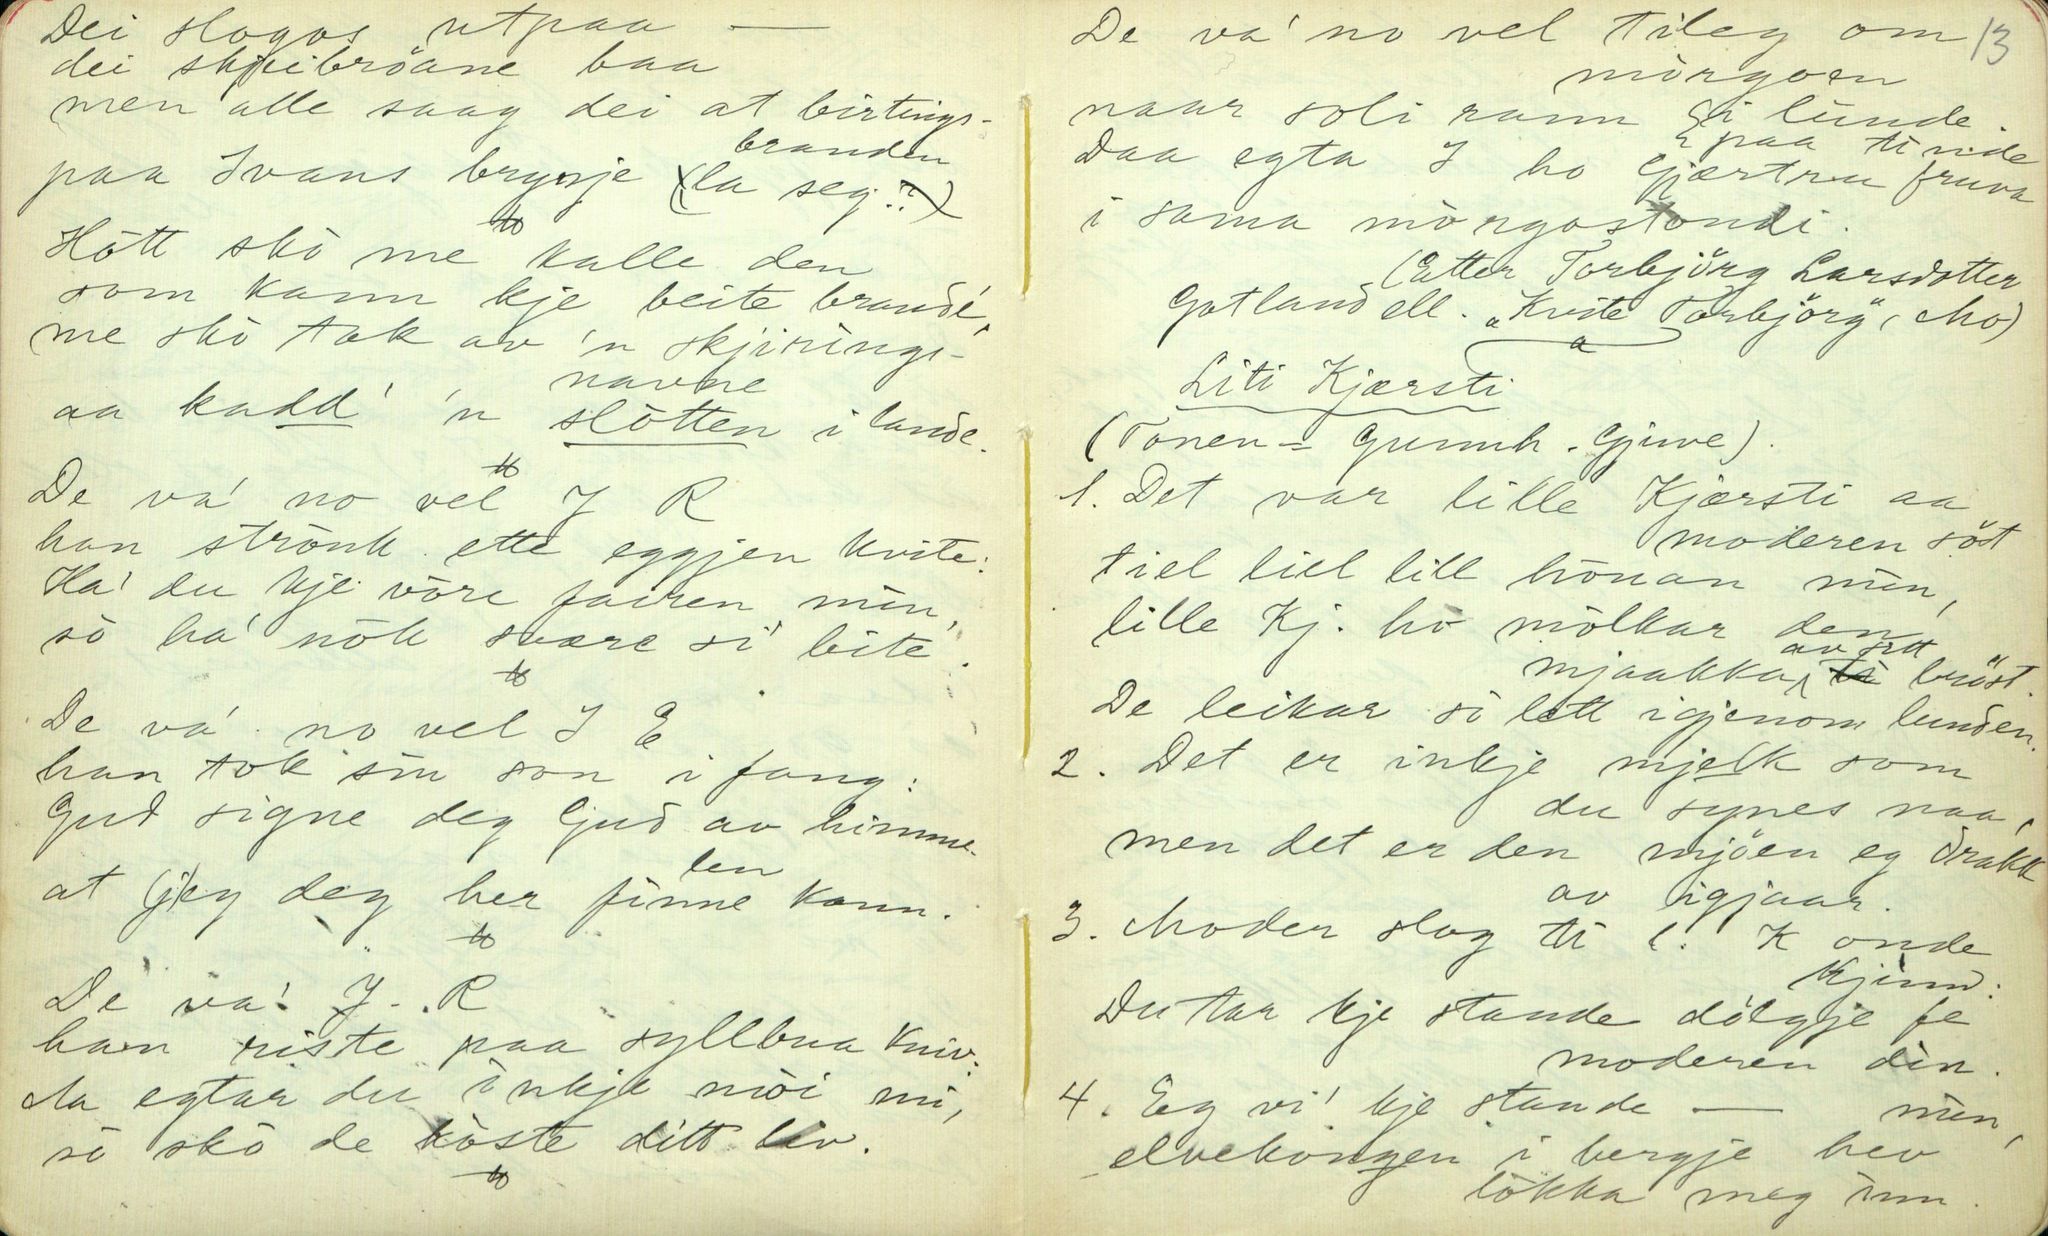 Dei slogos utpaa —
dei skjeibröane baa
men alle saag dei at birtings-
branden
paa Ivans brynje (la seg??)
Hòtt skò me kalle den
som kann kje beite brande,
me skò tak av 'n skjirings-
navne
aa kadd' 'n slòtten i lande.
De va' no vel J R
han strònk ette eggjen kvite:
Ha' du kje vòre faren min,
sò ha' nòk svære si' bite.
De va' no vel J E
han tok sin son i fang:
Gud signe deg Gud av himme-
len
at (j)eg deg her finne kann.
De va' J. R
han riste paa syllbua kniv:
Aa egtar du inkje mòi mi,
sò skò de kòste ditt liv.
13
De va' no vel tileg om
mòrgoen
naar soli rann i lunde.
paa tinde
Daa egta J ho Gjærtru fruva
i sama mòrgostondi.
(Etter Torbjörg Larsdotter
Gotland ell. "Kvite Torbjörg", Mo)
Liti Kjærsti
(Tonen = Gunnh. Gjuve).
1. Det var lille Kjærsti aa
moderen söt
tiel liel lill hònan min,
lille Kj. hò mòlkar den
av sitt
mjaakka ti bröst.
De leikar sò lett igjenom lunden.
2. Det er inkje mjelk som
du synes naa,
men det er den mjöen eg drakk
av igjaar.
3. Moder slog ti l. K onde
kjinn:
Du tar kje stande dölgje fe
moderen din.
4. Eg vi' kje stande — min,
elvekongen i bergje hev
lòkka meg inn.